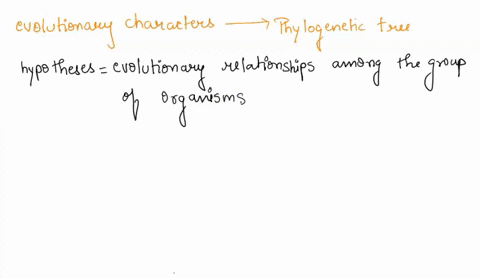 evolutionary characters → Phylogenetic tree
hypotheses = evolutionary relationships among the group
of organisms